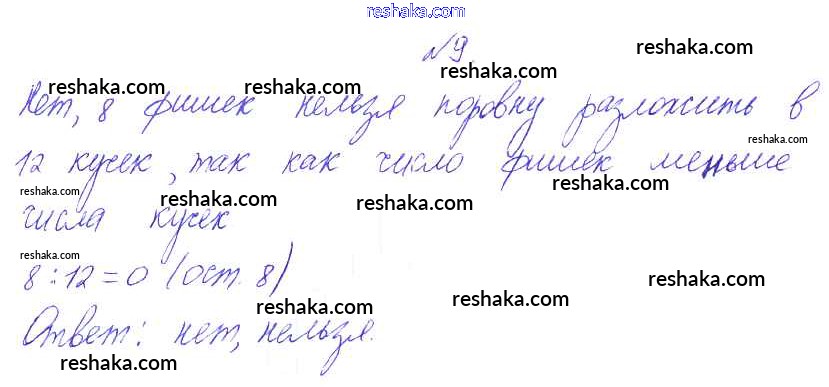 reshaka.com
№9 reshaka.com
reshaka.com reshaka.com reshaka.com reshaka.com
Нет, 8 фишек нельзя поровну разложить в
reshaka.com
12 кучек, так как число фишек меньше
reshaka.com reshaka.com reshaka.com reshaka.com
числа кучек
reshaka.com
8 : 12 = 0 (ост. 8)
reshaka.com reshaka.com reshaka.com
Ответ: нет, нельзя.
reshaka.com reshaka.com